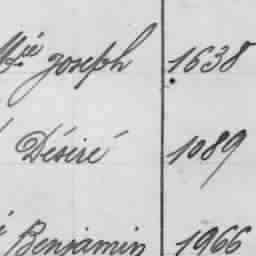 Mié Joseph 1638
Désiré 1089
Benjamin 1966